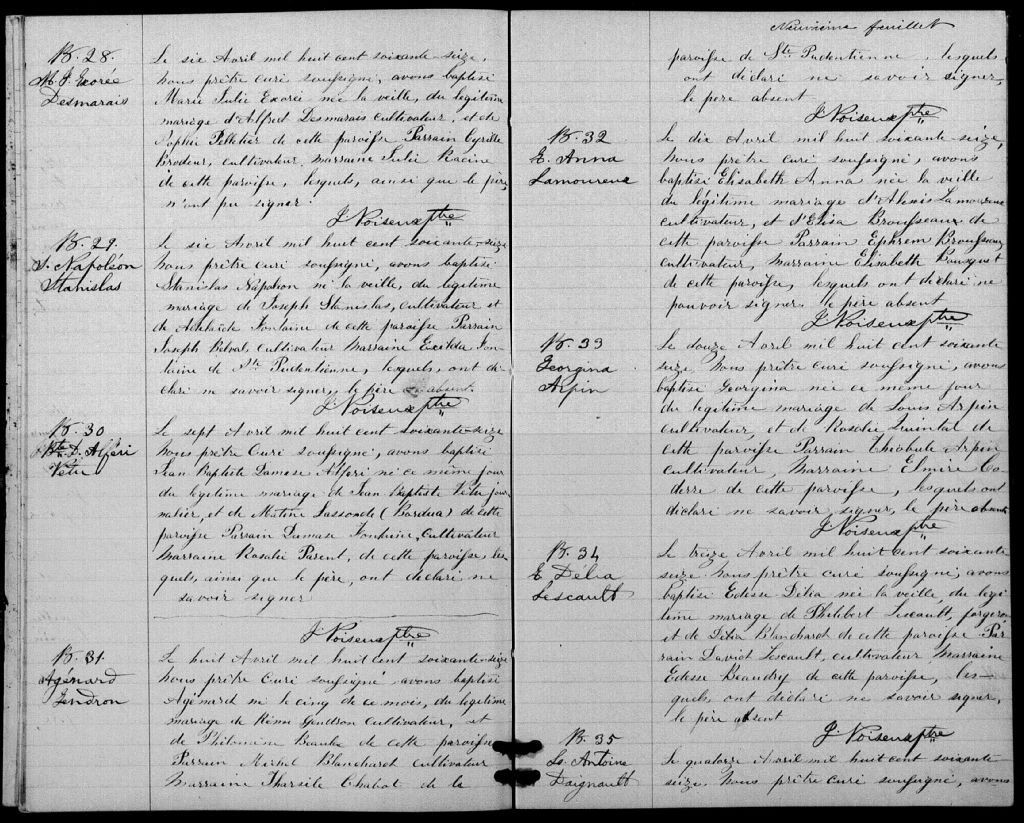 B. 28.
M. J. Exorée
Desmarais
Le six Avril mil huit cent soixante-seize,
nous prêtre curé soussigné, avons baptisé
Marie Julie Exorée née la veille, du légitime
mariage d'Alfred Desmarais cultivateur, et de
Sophie Pelletier de cette paroisse Parrain Cyrille
Brodeur, cultivateur, marraine Julie Racine
de cette paroisse, lesquels, ainsi que le père,
n'ont pu signer.
J Noiseux ptre
B. 29.
S. Napoléon
Stanislas
Le six Avril mil huit cent soixante-seize
nous prêtre Curé soussigné, avons baptisé
Stanislas Napoléon né la veille, du légitime
mariage de Joseph Stanislas, cultivateur et
de Adelaïde Fontaine de cette paroisse Parrain
Joseph Belval, cultivateur Marraine Exilda Fon-
taine de Ste Pudentienne, lesquels, ont dé-
claré ne savoir signer, le père absent.
J Noiseux ptre
B. 30
Bte D. Alféri
Vétu
Le sept Avril mil huit cent soixante-seize
nous prêtre Curé soussigné, avons baptisé
Jean Baptiste Damase Alféri né ce même jour
du légitime mariage de Jean Baptiste Vétu jour
nalier, et de Lassonde (Bardua) de cette
paroisse Parrain Damase Fontaine, cultivateur
Marraine Rosalie Parent, de cette paroisse, les
quels, ainsi que le père, ont déclaré ne
savoir signer
J Noiseux ptre
B. 31.
Agénard
Gendron
Le huit Avril mil huit cent soixante-seize
nous prêtre Curé soussigné avons baptisé
Agénard né le cinq de ce mois, du légitime
mariage de Rémi Gendron Cultivateur, et
de Philomène de cette paroisse
Parrain Michel Blanchard cultivateur
Marraine Tharsile Chabot de la
Neuvième feuillet
paroisse de Ste Pudentienne, lesquels
ont déclaré ne savoir signer,
le père absent
J Noiseux ptre
B. 32
E. Anna
Lamoureux
Le dix Avril mil huit soixante-seize,
nous prêtre curé soussigné, avons
baptisé Elisabeth Anna née la veille
du légitime mariage d'Alexis Lamoureux
cultivateur, et d'Elisa Brousseau de
cette paroisse Parrain Ephrem Brousseau
cultivateur, Marraine Elisabeth Bousquet
de cette paroisse, lesquels ont déclaré ne
pouvoir signer le père absent
J Noiseux ptre
B. 33
Georgina
Arpin
Le douze Avril mil huit cent soixante
seize, nous prêtre curé soussigné, avons
baptisé Georgina née ce même jour
du légitime mariage de Louis Arpin
cultivateur, et de Rosalie Quintal de
cette paroisse Parrain Théodule Arpin
cultivateur, Marraine Elmire Co
derre de cette paroisse, lesquels ont
déclaré ne savoir signer, le père absent
J Noiseux ptre
B. 34
E Délia
Lescault
Le treize Avril mil huit cent soixante
seize nous prêtre curé soussigné, avons
baptisé Edesse Délia née la veille du légi
time mariage de Philibert Lescault, forgeron
et de Délia Blanchard de cette paroisse Par
rain David Lescault, cultivateur Marraine
Edesse Beaudry de cette paroisse, les-
quels, ont déclaré ne savoir signer,
le père absent
J. Noiseux ptre
B. 35
Ls. Antoine
Daignault
Le quatorze Avril mil huit cent soixante
seize, nous prêtre curé soussigné, avons